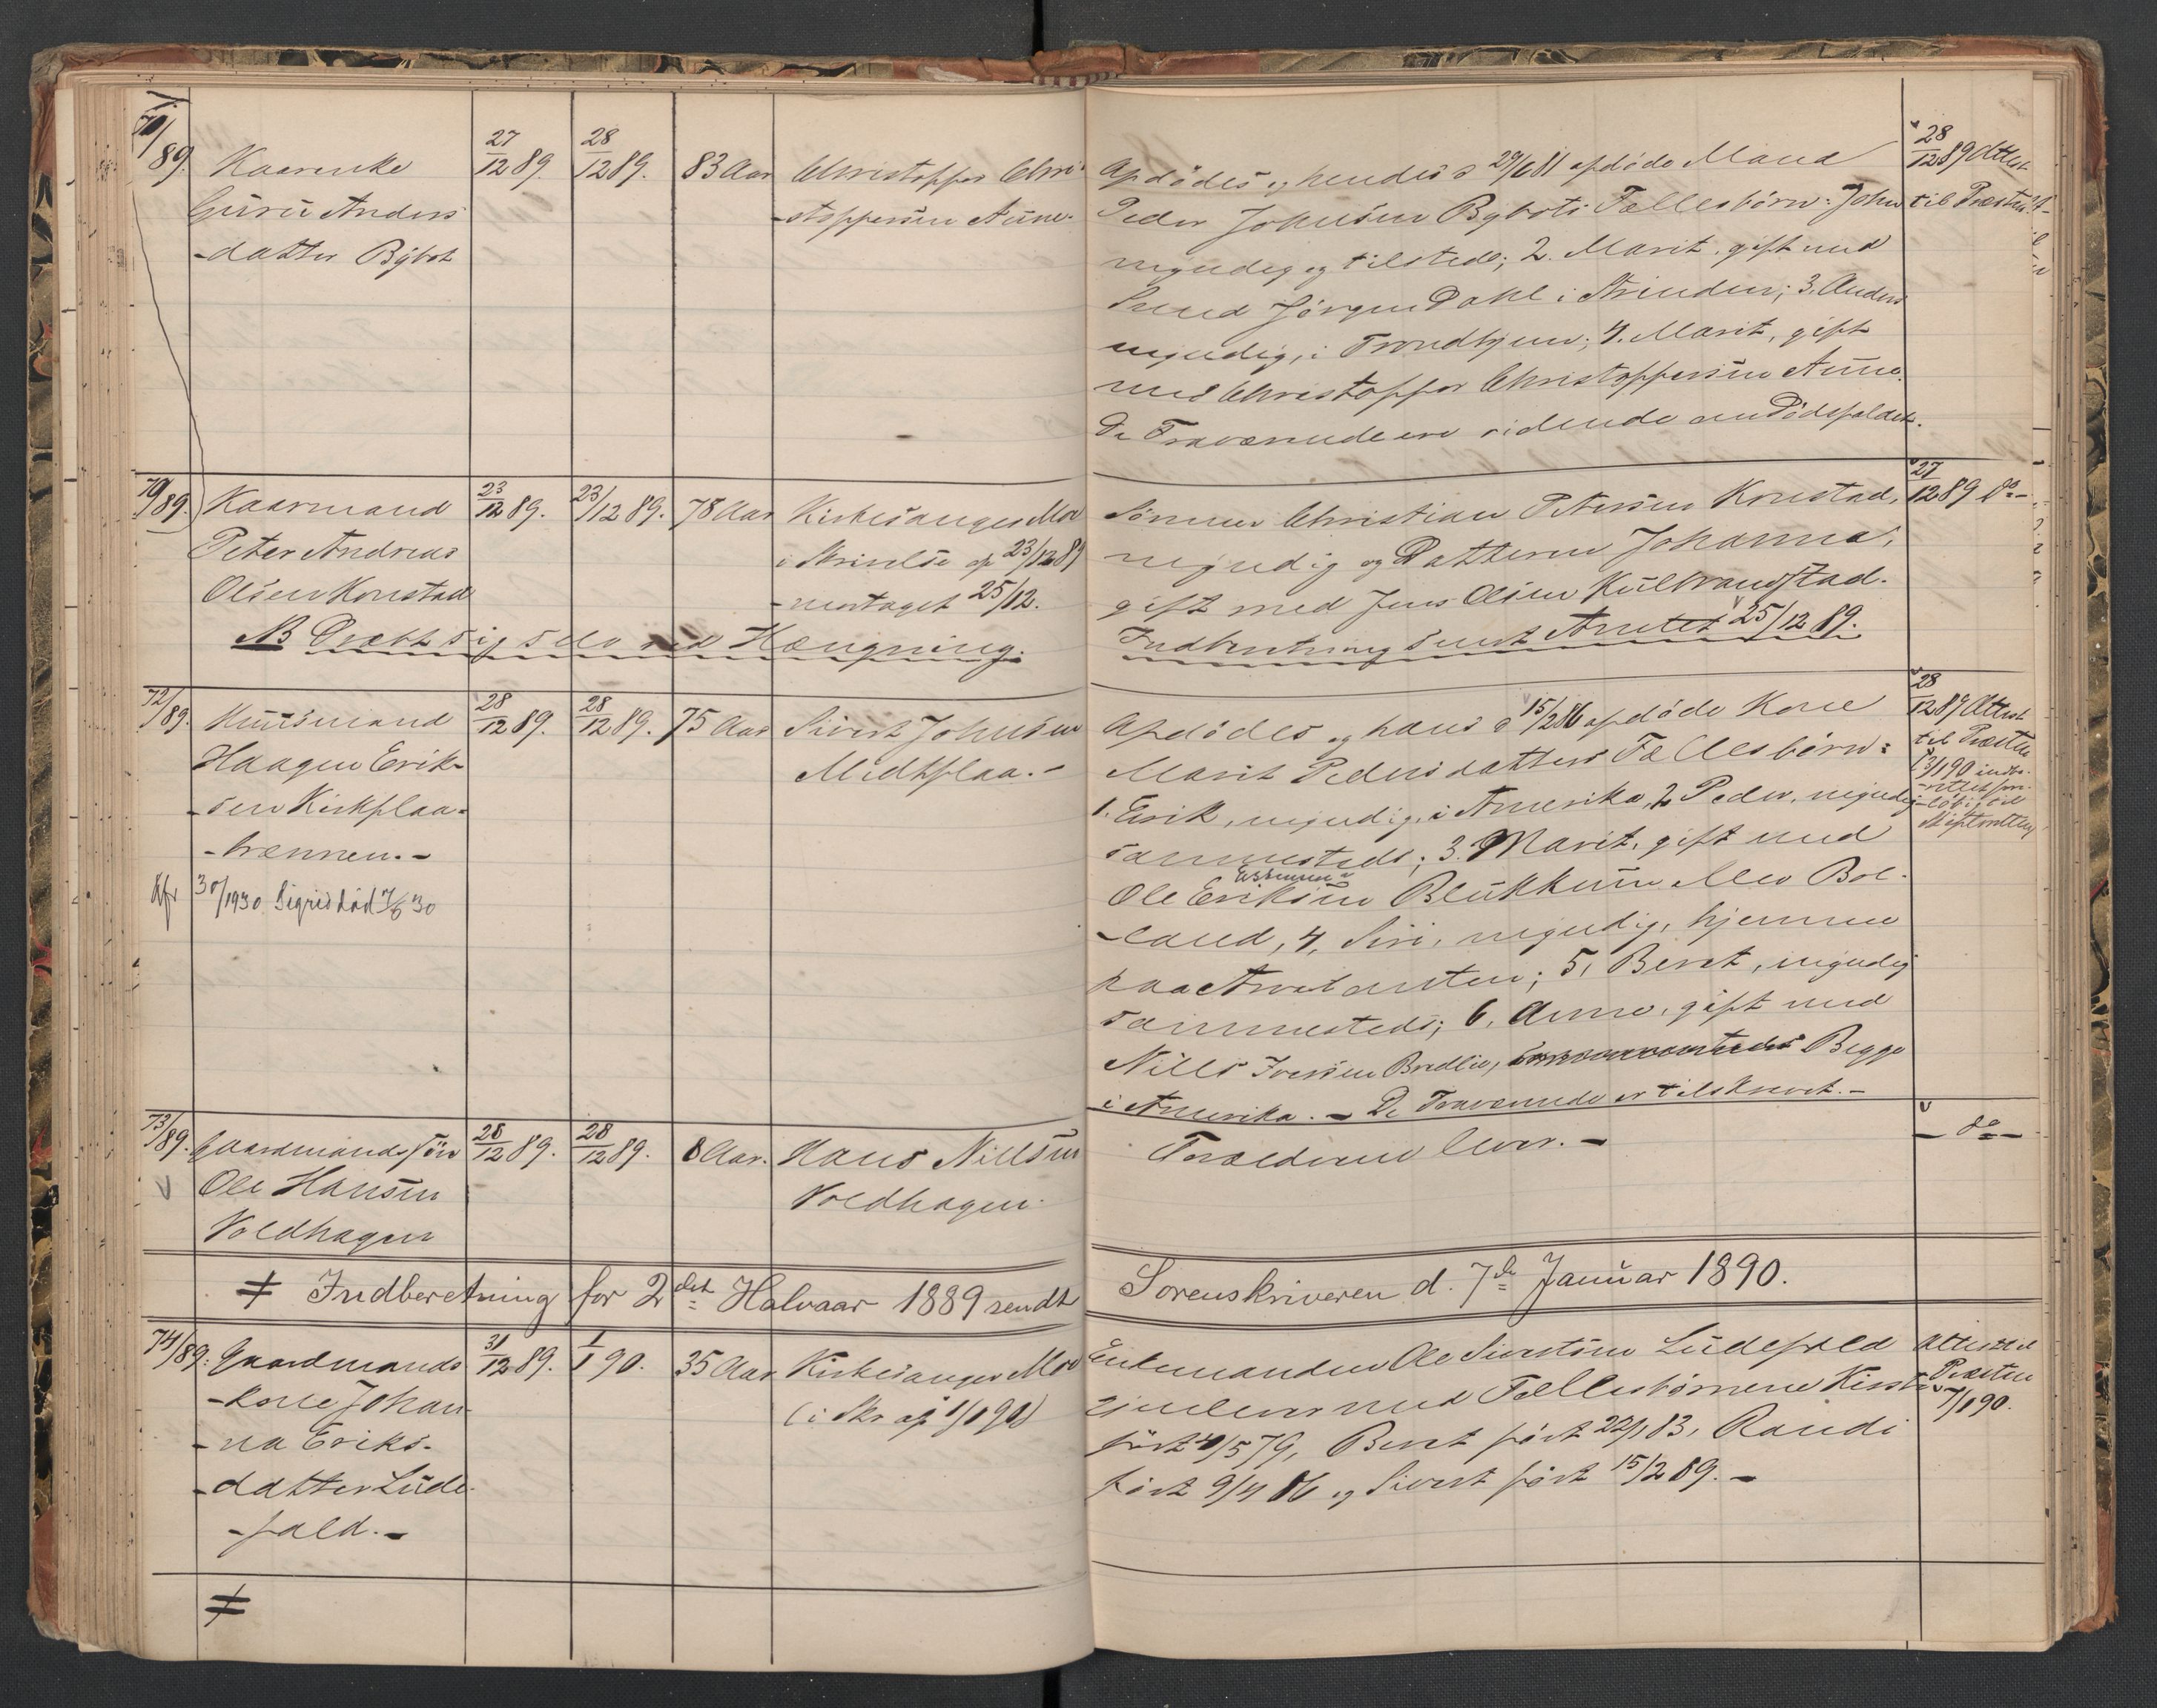 71/89.
Kaarenke
Guru Anders
-datter Bybot
27/12 89.
28/12 89.
83 Aar
Christoffer Chri-
-stoffersen Aune.
Afdødes og hendes d 29/6 81 afdøde Mand
Peder Johnsen Bybots Fællesbørn: John
myndig og tilstede; 2. Marit, gift med
Smed Jörgen Dahl i Strinden; 3. Anders
myndig, i Trondhjem; 4. Marit, gift
med Christoffer Christoffersen Aune.
De Fraværende ere vidende om Dödsfaldet.
28/12 89 Attest
til Præsten
70/89.
Kaarmand
Peter Andreas
Olsen Konstad
23/12 89.
23/12 89.
78 Aar
Kirkesanger Moe
i Skrivelse af 23/12 89
modtaget 25/12.
NB Dræbt sig selv ved Hængning.
Sönnen Christian Petersen Konstad,
myndig og Datteren Johanna,
gift med Jens Olsen Kulbrandstad.
Indberetning sendt Amtet 25/12 89.
27/12 89 do-
72/89.
Huusmand
Haagen Erik-
-sen Kirkflaa-
-brænnen.-
28/12 89.
28/12 89.
75 Aar
Sivert Johnsen
Midtflaa.-
Kfr 30/1930 Sigrid död 7/6 30
Afdödes og hans d 15/2 86 afdöde Kone
Marit Pedersdatters Fællesbörn:
1. Erik, myndig, i Amerika, 2. Peder, myndig
sammesteds; 3. Marit, gift med
Ole Eriksen Blukkum Moe Bol-
-land, 4. Siri, myndig, hjemme
paa Arvetomten; 5, Beret, myndig
sammesteds; 6. Anne, gift med
Nills Iversen Bredlie, sammesteds Begge
i Amerika. - De Fraværende er tilskrevet.-
28/12 89 Attest
til Præsten
13/1 90 indbe-
-rettet for-
-löbig til
Skifteretten
73/89.
Gaardmands sön
Ole Hansen
Voldhagen
28/12 89.
28/12 89.
8 Aar.
Hans Nillsen
Voldhagen.
Forældrene lever.-
- do -
≠ Indberetning for 2det Halvaar 1889 sendt
Sorenskriveren d. 7de Januar 1890.
74/89.
Gaardmands
-kone Johan-
-na Eriks-
-datter Lüde-
-fald.-
31/12 89.
1/1 90.
35 Aar
Kirkesanger Moe
(i Skr af 1/1 90)
Enkemanden Ole Sivertsen Lüdefald
gjenlever med Fællesbörnene Kirsti
född 4/5 79, Beret född 22/1 83, Randi
född 9/4 86 og Sivert född 15/2 89.-
Attest til
Præsten
7/1 90.
≠